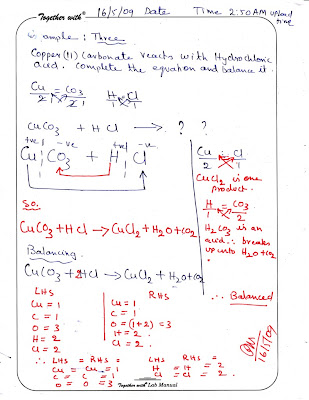 Together with®
16/5/09 Date Time 2:50AM upload time
Example: Three
Copper (II) Carbonate reacts with Hydrochloric
acid. Complete the equation and balance it.
Cu CO3 H Cl
2 2 1 1
CuCO3 + HCl → ? ?
+ve -ve +ve -ve
Cu CO3 + H Cl
Cu : Cl
2 1
CuCl2 is one
product.
H CO3
1 2
H2CO3 is an
acid ∴ breaks
up into H2O + CO2
So.
CuCO3 + HCl → CuCl2 + H2O + CO2
Balancing.
CuCO3 + 2HCl → CuCl2 + H2O + CO2
LHS RHS
Cu = 1 Cu = 1
C = 1 C = 1
O = 3 O = (1+2) = 3
H = 2 H = 2
Cl = 2 Cl = 2
∴ Balanced
∴ LHS = RHS = LHS = RHS =
Cu = Cu = 1 H = H = 2
C = C = 1 Cl = Cl = 2
O = O = 3
16/5/09
Together with® Lab Manual